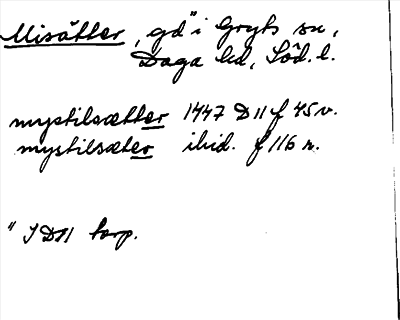 Misätter, gd" i Gryts sn,
Daga hd, Söd. l.
mystilsætter 1447 D 11 f 45 v.
mystilsæter ibid. f 116 r.
" I D 11 torp.